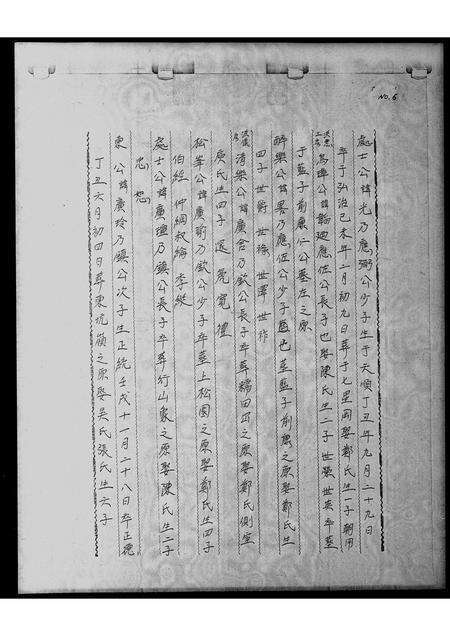 NO. 6
處士公諱光乃應弼公少子生于天順丁丑年九月二十九日
卒于弘治己未年二月初九日葬于七星岡娶鄭氏生一子朝用
公諱廷應佐公長子也娶陳氏生二子世榮世英卒葬
于藍子前康仁公墓左之原
醉樂公諱畧乃應佐公少子葬藍子前康之原娶鄭氏生
四子世爵世祿世澤世祚
清樂公諱廣含乃欽公長子卒葬糯田之原娶鄭氏側室
吳氏生四子寬禮
松峯公諱廣乃欽公少子卒葬上松園之原娶鄭氏生四子
伯經仲綱叔綸季縱
處士公諱廣瓊乃鎮公長子卒葬竹山東之原娶陳氏生二子
忠恕
東公諱廣玲乃鎮公次子生正統壬戌十一月二十八日卒正德
丁丑六月初四日葬東坑嶺之原娶吳氏張氏生六子